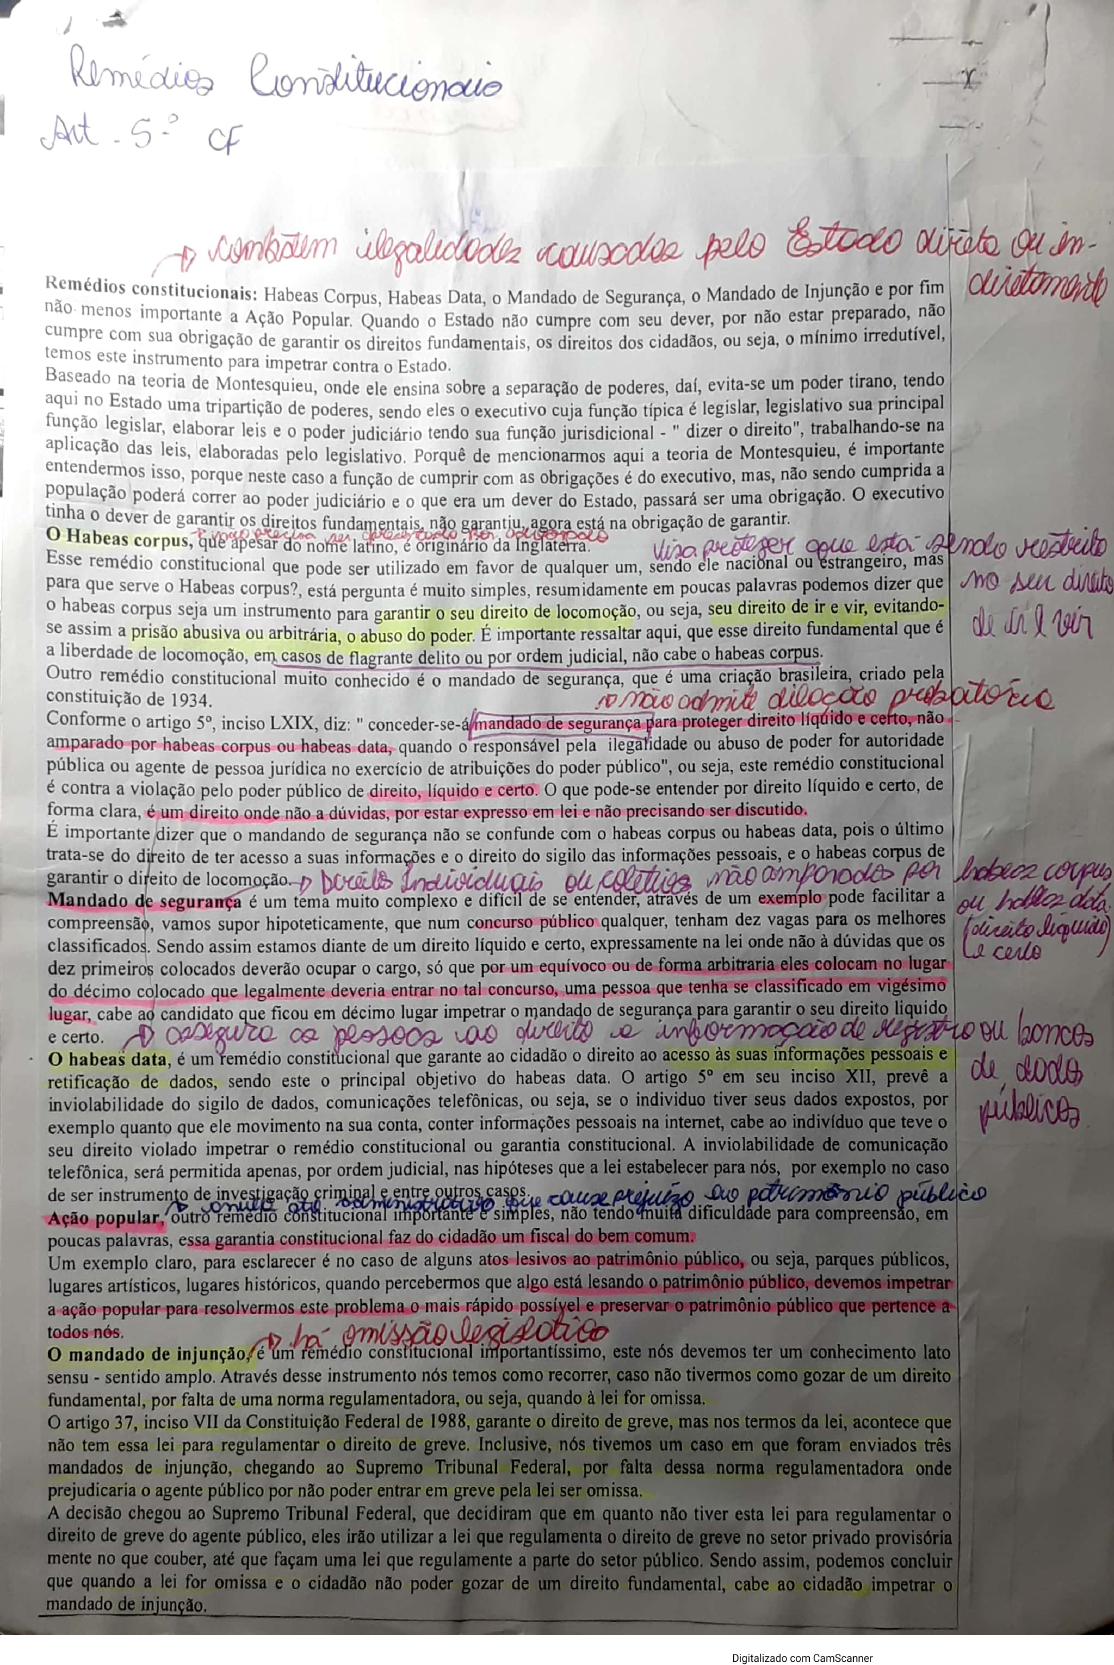 Remédios Constitucionais
Art - 5º CF
combatem ilegalidades causadas pelo Estado direta ou in-
diretamente
Remédios constitucionais: Habeas Corpus, Habeas Data, o Mandado de Segurança, o Mandado de Injunção e por fim
não menos importante a Ação Popular. Quando o Estado não cumpre com seu dever, por não estar preparado, não
cumpre com sua obrigação de garantir os direitos fundamentais, os direitos dos cidadãos, ou seja, o mínimo irredutível,
temos este instrumento para impetrar contra o Estado.
Baseado na teoria de Montesquieu, onde ele ensina sobre a separação de poderes, daí, evita-se um poder tirano, tendo
aqui no Estado uma tripartição de poderes, sendo eles o executivo cuja função típica é legislar, legislativo sua principal
função legislar, elaborar leis e o poder judiciário tendo sua função jurisdicional - " dizer o direito", trabalhando-se na
aplicação das leis, elaboradas pelo legislativo. Porquê de mencionarmos aqui a teoria de Montesquieu, é importante
entendermos isso, porque neste caso a função de cumprir com as obrigações é do executivo, mas, não sendo cumprida a
população poderá correr ao poder judiciário e o que era um dever do Estado, passará ser uma obrigação. O executivo
tinha o dever de garantir os direitos fundamentais, não garantiu, agora está na obrigação de garantir.
não precisa ser apresentado por advogado
O Habeas corpus, que apesar do nome latino, é originário da Inglaterra.
Visa proteger que está sendo restrito
no seu direito
de ir e vir
Esse remédio constitucional que pode ser utilizado em favor de qualquer um, sendo ele nacional ou estrangeiro, mas
para que serve o Habeas corpus?, está pergunta é muito simples, resumidamente em poucas palavras podemos dizer que
o habeas corpus seja um instrumento para garantir o seu direito de locomoção, ou seja, seu direito de ir e vir, evitando-
se assim a prisão abusiva ou arbitrária, o abuso do poder. É importante ressaltar aqui, que esse direito fundamental que é
a liberdade de locomoção, em casos de flagrante delito ou por ordem judicial, não cabe o habeas corpus.
Outro remédio constitucional muito conhecido é o mandado de segurança, que é uma criação brasileira, criado pela
constituição de 1934.
não admite dilação probatória
Conforme o artigo 5º, inciso LXIX, diz: " conceder-se-á mandado de segurança para proteger direito líquido e certo, não
amparado por habeas corpus ou habeas data, quando o responsável pela ilegalidade ou abuso de poder for autoridade
pública ou agente de pessoa jurídica no exercício de atribuições do poder público", ou seja, este remédio constitucional
é contra a violação pelo poder público de direito, líquido e certo. O que pode-se entender por direito líquido e certo, de
forma clara, é um direito onde não a dúvidas, por estar expresso em lei e não precisando ser discutido.
É importante dizer que o mandando de segurança não se confunde com o habeas corpus ou habeas data, pois o último
trata-se do direito de ter acesso a suas informações e o direito do sigilo das informações pessoais, e o habeas corpus de
garantir o direito de locomoção.
Direitos Individuais ou coletivos não amparados por habeas corpus
ou habeas data
(direito líquido
e certo
Mandado de segurança é um tema muito complexo e difícil de se entender, através de um exemplo pode facilitar a
compreensão, vamos supor hipoteticamente, que num concurso público qualquer, tenham dez vagas para os melhores
classificados. Sendo assim estamos diante de um direito líquido e certo, expressamente na lei onde não à dúvidas que os
dez primeiros colocados deverão ocupar o cargo, só que por um equívoco ou de forma arbitraria eles colocam no lugar
do décimo colocado que legalmente deveria entrar no tal concurso, uma pessoa que tenha se classificado em vigésimo
lugar, cabe ao candidato que ficou em décimo lugar impetrar o mandado de segurança para garantir o seu direito liquido
e certo.
assegura as pessoas ao direito a informação de registro ou bancos
de dados
públicos
O habeas data, é um remédio constitucional que garante ao cidadão o direito ao acesso às suas informações pessoais e
retificação de dados, sendo este o principal objetivo do habeas data. O artigo 5º em seu inciso XII, prevê a
inviolabilidade do sigilo de dados, comunicações telefônicas, ou seja, se o individuo tiver seus dados expostos, por
exemplo quanto que ele movimento na sua conta, conter informações pessoais na internet, cabe ao indivíduo que teve o
seu direito violado impetrar o remédio constitucional ou garantia constitucional. A inviolabilidade de comunicação
telefônica, será permitida apenas, por ordem judicial, nas hipóteses que a lei estabelecer para nós, por exemplo no caso
de ser instrumento de investigação criminal e entre outros casos.
anula ato administrativo que cause prejuízo ao patrimônio público
Ação popular, outro remédio constitucional importante e simples, não tendo muita dificuldade para compreensão, em
poucas palavras, essa garantia constitucional faz do cidadão um fiscal do bem comum.
Um exemplo claro, para esclarecer é no caso de alguns atos lesivos ao patrimônio público, ou seja, parques públicos,
lugares artísticos, lugares históricos, quando percebermos que algo está lesando o patrimônio público, devemos impetrar
a ação popular para resolvermos este problema o mais rápido possível e preservar o patrimônio público que pertence a
todos nós.
há omissão legislativa
O mandado de injunção, é um remédio constitucional importantíssimo, este nós devemos ter um conhecimento lato
sensu - sentido amplo. Através desse instrumento nós temos como recorrer, caso não tivermos como gozar de um direito
fundamental, por falta de uma norma regulamentadora, ou seja, quando à lei for omissa.
O artigo 37, inciso VII da Constituição Federal de 1988, garante o direito de greve, mas nos termos da lei, acontece que
não tem essa lei para regulamentar o direito de greve. Inclusive, nós tivemos um caso em que foram enviados três
mandados de injunção, chegando ao Supremo Tribunal Federal, por falta dessa norma regulamentadora onde
prejudicaria o agente público por não poder entrar em greve pela lei ser omissa.
A decisão chegou ao Supremo Tribunal Federal, que decidiram que em quanto não tiver esta lei para regulamentar o
direito de greve do agente público, eles irão utilizar a lei que regulamenta o direito de greve no setor privado provisória
mente no que couber, até que façam uma lei que regulamente a parte do setor público. Sendo assim, podemos concluir
que quando a lei for omissa e o cidadão não poder gozar de um direito fundamental, cabe ao cidadão impetrar o
mandado de injunção.
Digitalizado com CamScanner